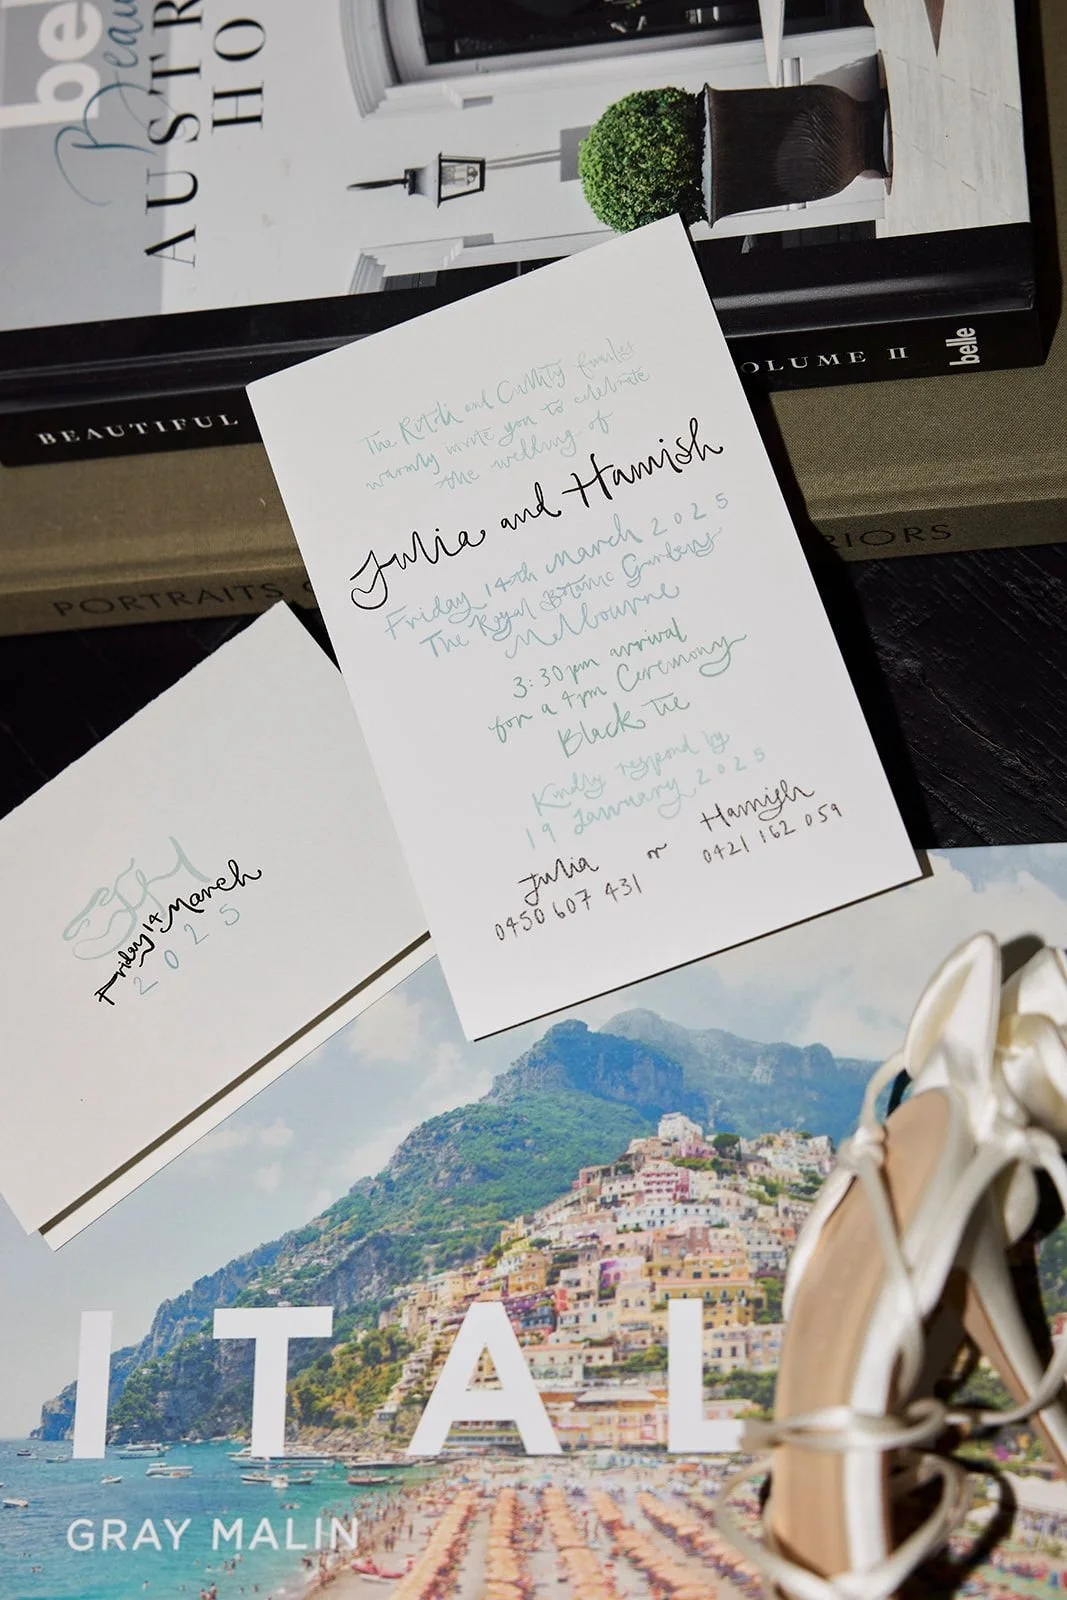 be
Beau
AUSTR
HO
BEAUTIFUL
OLUME II
belle
PORTRAITS
RIORS
The and families
warmly invite you to celebrate
the wedding of
Julia and Hamish
Friday 14th March 2025
The Royal Botanic Gardens
Melbourne
3:30pm arrival
for a 4pm Ceremony
Black tie
Kindly respond by
19 January 2025
Julia or Hamish
0450 607 431 0421 162 059
Friday 14 March
2025
ITAL
GRAY MALIN